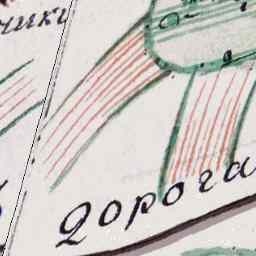 чики
Дорога